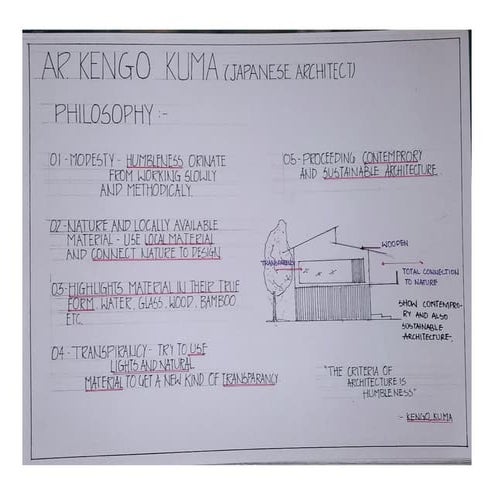 AR. KENGO KUMA (JAPANESE ARCHITECT)
PHILOSOPHY :-
01 - MODESTY - HUMBLENESS ORINATE
FROM WORKING SLOWLY
AND METHODICALY.
02 - NATURE AND LOCALLY AVAILABLE
MATERIAL - USE LOCAL MATERIAL
AND CONNECT NATURE TO DESIGN
03 - HIGHLIGHTS MATERIAL IN THEIR TRUE
FORM. WATER, GLASS, WOOD, BAMBOO
ETC.
04 - TRANSPIRANCY - TRY TO USE
LIGHTS AND NATURAL
MATERIAL TO GET A NEW KIND OF TRANSPARANCY
05 - PROCEEDING CONTEMPRORY
AND SUSTAINABLE ARCHITECTURE.
WOODEN
TRANSPARENCY
TOTAL CONNECTION
TO NATURE
SHOW CONTEMPRO-
RY AND ALSO
SUSTAINABLE
ARCHITECTURE.
"THE CRITERIA OF
ARCHITECTURE IS
HUMBLENESS"
:- KENGO KUMA